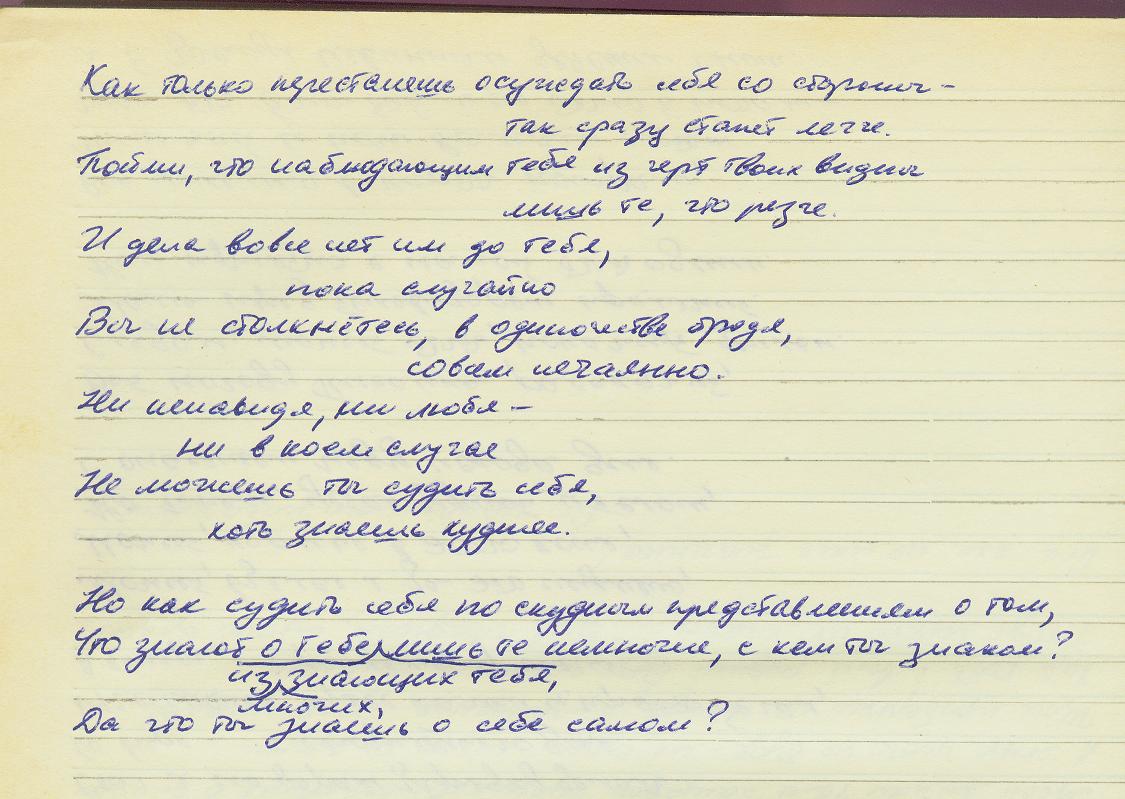 Как только перестанешь осуждать себя со стороны –
так сразу станет легче.
Пойми, что наблюдающим тебя из черт твоих видны
лишь те, что резче.
И дела вовсе нет им до тебя,
пока случайно
Вы не столкнётесь, в одиночестве бродя,
совсем нечаянно.
Ни ненавидя, ни любя –
ни в коем случае
Не можешь ты судить себя,
хоть знаешь худшее.
Но как судить себя по скудным представлениям о том,
Что знают о тебе лишь те немногие, с кем ты знаком?
из знающих тебя,
многих,
Да что ты знаешь о себе самом?